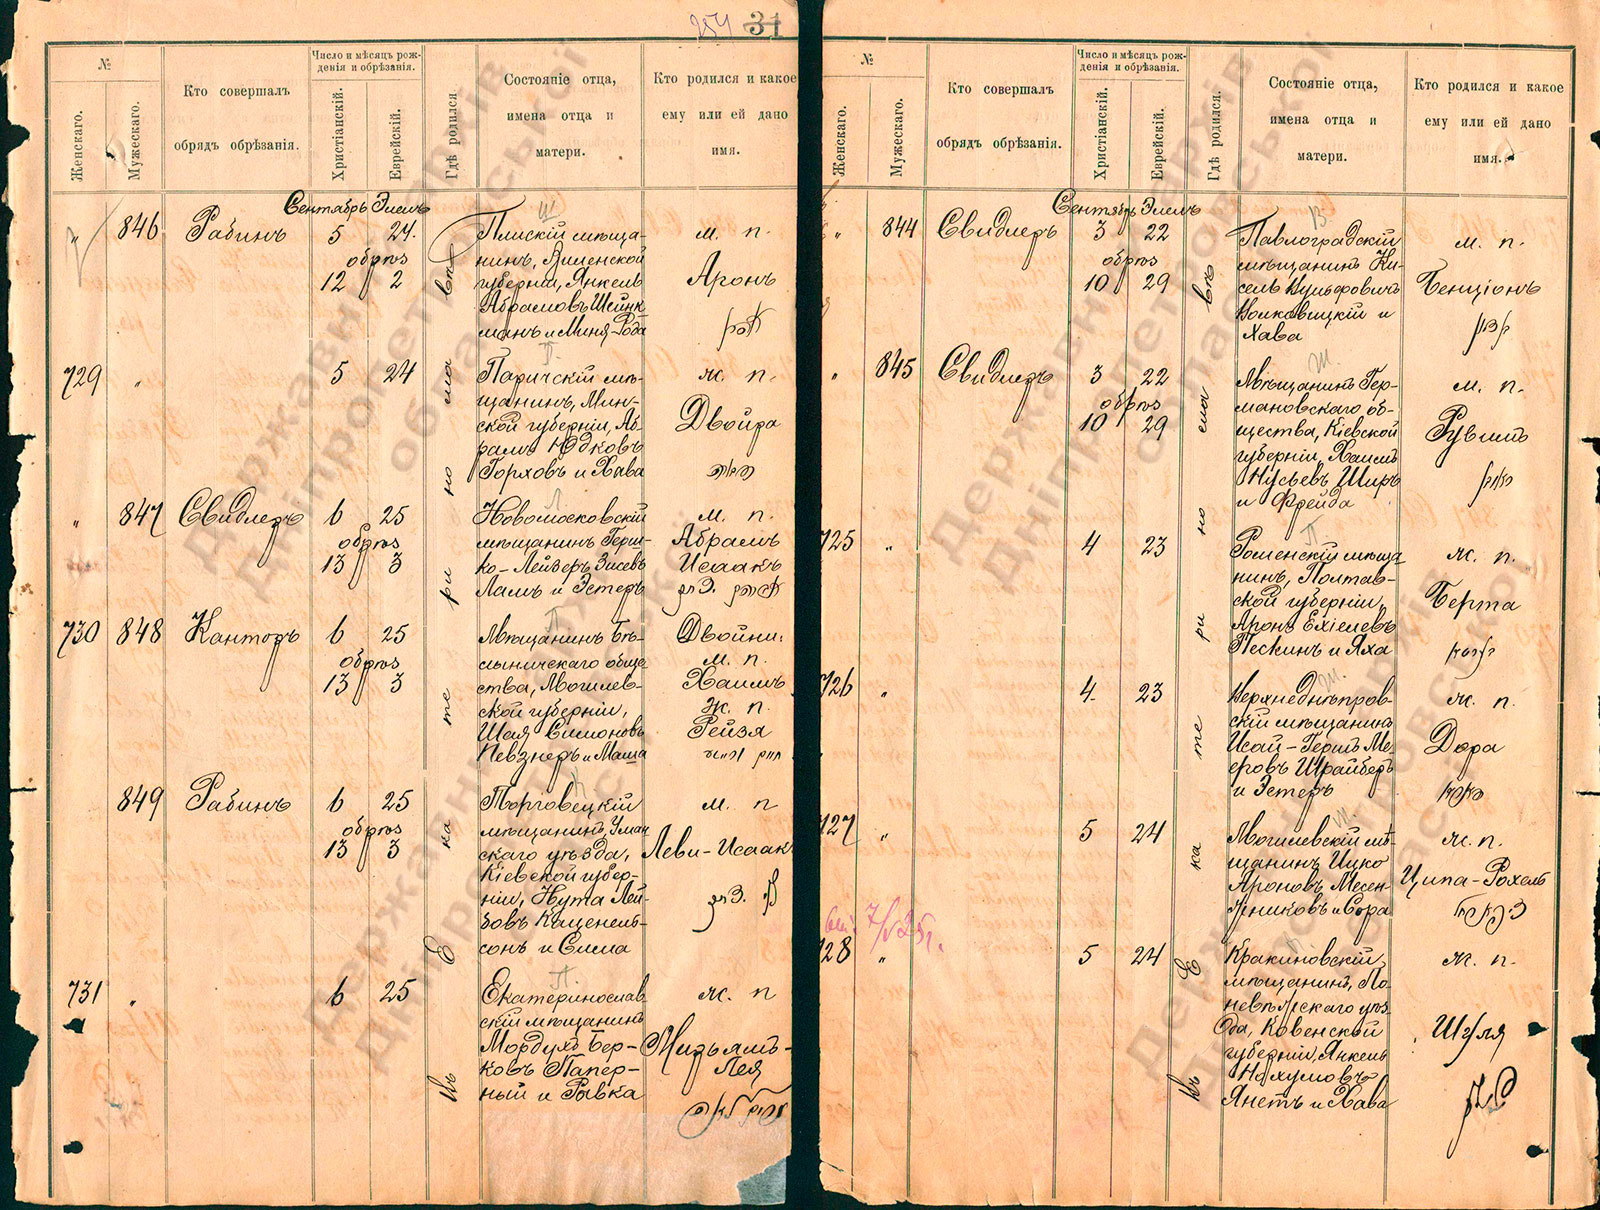 254 31
№
Женскаго.
Мужескаго.
Кто совершалъ
обрядъ обрѣзанія.
Число и мѣсяцъ рож-
денія и обрѣзанія.
Христіанскій.
Еврейскій.
Гдѣ родился.
Состояніе отца,
имена отца и
матери.
Кто родился и какое
ему или ей дано
имя.
Сентябрь Элель
" 846 Рабинъ 5 24.
обрѣз
12 2
Плискій мѣща-
нинъ, Виленской
губерніи, Янкель
Абрамовъ Шейнк-
манъ и Миня-Рода
м. п.
Аронъ
729 " 5 24
Паричскій мѣ-
щанинъ, Мин-
ской губерніи, Аб-
рамъ Юдковъ
Горховъ и Хава
ж. п.
Двойра
" 847 Свидлеръ 6 25
обрѣз
13 3
Новомосковскій
мѣщанинъ Герш-
ко-Лейзеръ Зисевъ
Ламъ и Эстеръ
м. п.
Абрамъ
Исаакъ
730 848 Канторъ 6 25
обрѣз
13 3
Мѣщанинъ Бѣ-
лыничскаго обще-
ства, Могилев-
ской губерніи,
Шая Симоновъ
Певзнеръ и Маша
Двойни:
м. п.
Хаимъ
Ж. п.
Рейзя
849 Рабинъ 6 25
обрѣз
13 3
Торговецкій
мѣщанинъ, Уман
скаго уѣзда,
Кіевской губер-
ніи, Нута Лей-
бовъ Каценель-
сонъ и Сима
м. п
Леви-Исаакъ
731 " 6 25
Екатеринослав
скій мѣщанинъ
Мордухъ Бер-
ковъ Папер-
ный и Рывка
ж. п
Лея
въ Екатеринославѣ
№
Женскаго.
Мужескаго.
Кто совершалъ
обрядъ обрѣзанія.
Число и мѣсяцъ рож-
денія и обрѣзанія.
Христіанскій.
Еврейскій.
Гдѣ родился.
Состояніе отца,
имена отца и
матери.
Кто родился и какое
ему или ей дано
имя.
Сентябрь Элель
" 844 Свидлеръ 3 22
обрѣз
10 29
Павлоградскій
мѣщанинъ Ки-
сель Вульфовичъ
Волковицкій и
Хава
м. п.
Бенціонъ
" 845 Свидлеръ 3 22
обрѣз
10 29
Мѣщанинъ Гер-
мановскаго об-
щества, Кіевской
губерніи, Хаимъ
НусьевъШиръ
и Фрейда
м. п.
Рувинъ
725 " 4 23
Роменскій мѣща
нинъ, Полтав-
ской губерніи,
Аронъ Ехіелевъ
Пескинъ и Яха
ж. п.
Берта
726 " 4 23
Верхнеднѣпров-
скій мѣщанинъ
Исай-Гершъ Ме-
еровъ Шрайберъ
и Эстеръ
ж. п.
Дора
727 " 5 24
Могилевскій мѣ
щанинъ Ицко
Ароновъ Месен-
жниковъ и Сора
ж. п.
Ципа-Рохель
728 " 5 24
Кракиновскій
мѣщанинъ, По-
невѣжскаго уѣз
да, Ковенской
губерніи, Янкель
Нахумовъ
Янетъ и Хава
ж. п.
Шуля
въ Екатеринославѣ
Державний архів
Дніпропетровської
області